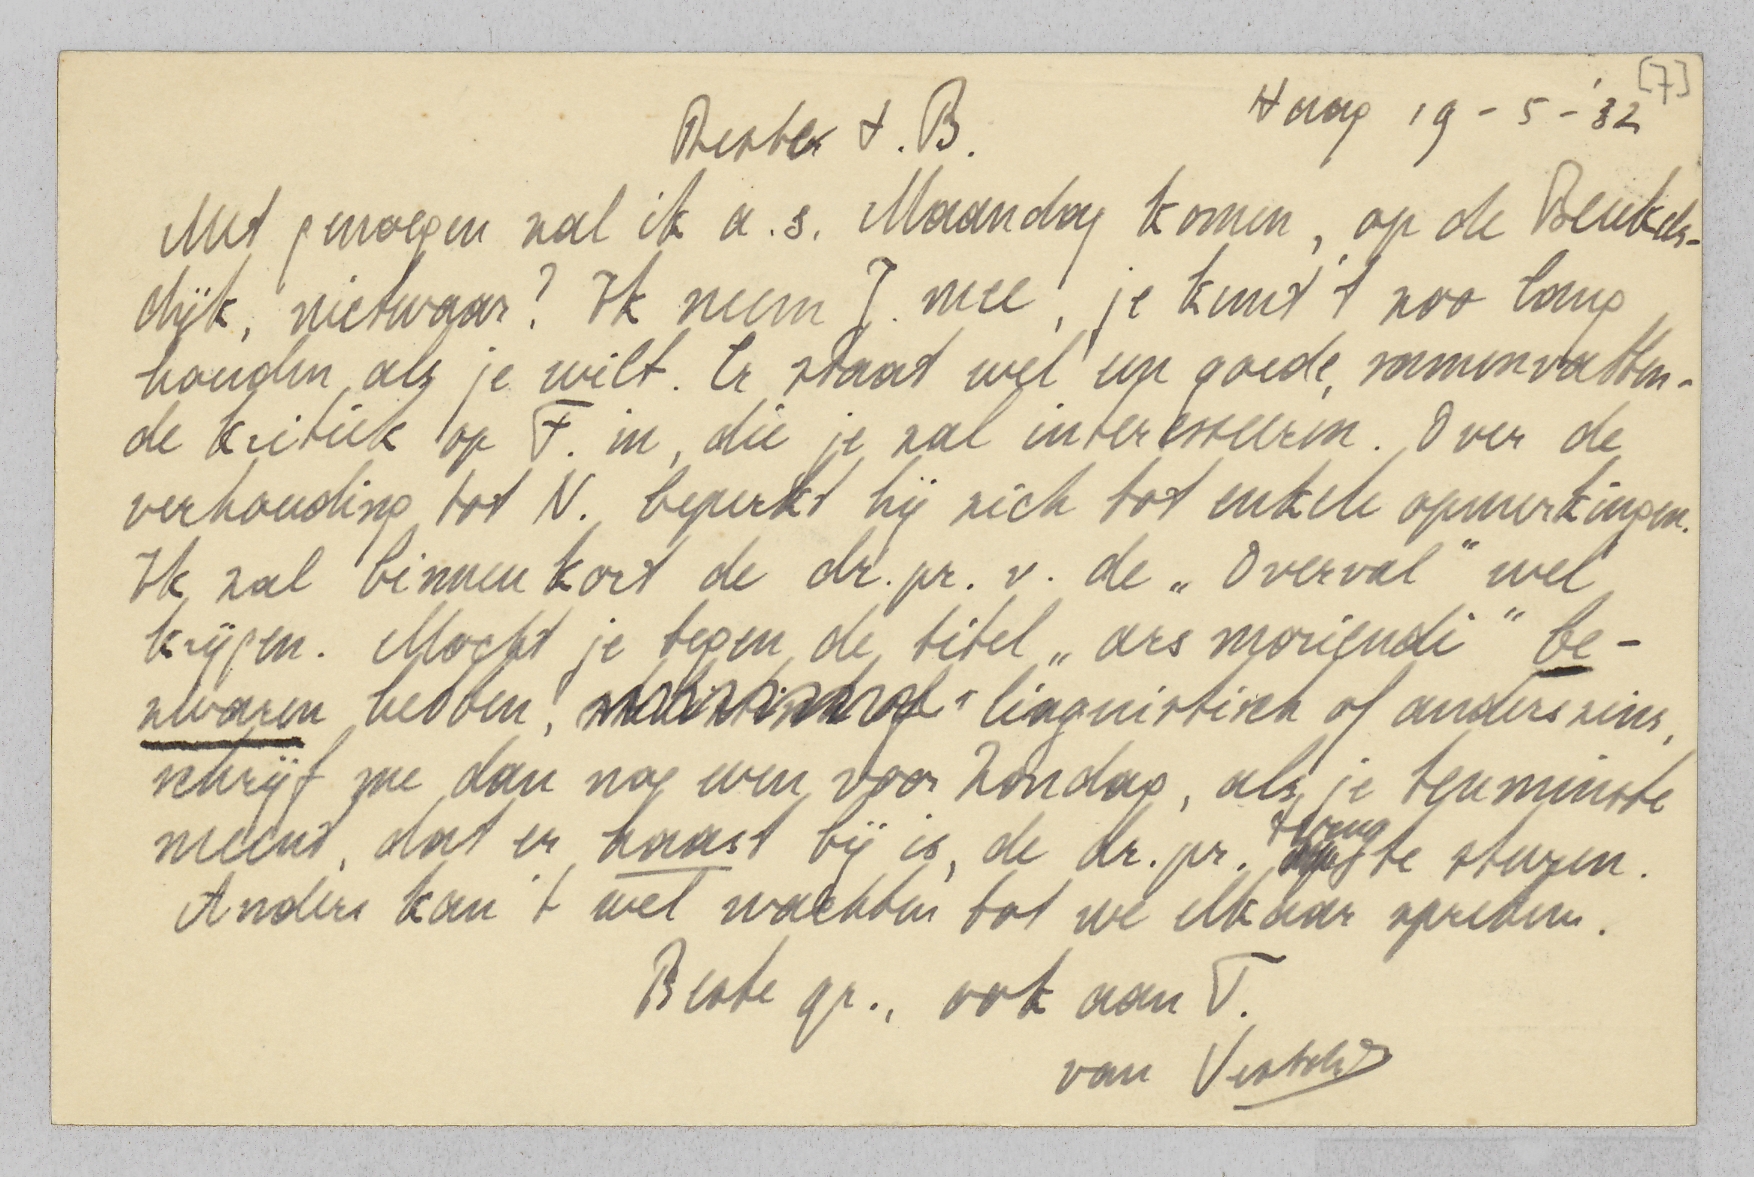 [7]
Haag 19-5-'32
Beste t. B.
Met genoegen zal ik a.s. Maandag komen, op de Beukels-
dijk, nietwaar? Ik neem J. mee, je kunt 't zoo lang
houden als je wilt. Er staat wel een goede, samenvatten-
de kritiek op F. in, die je zal interesseeren. Over de
verhouding tot N. beperkt hij zich tot enkele opmerkingen.
Ik zal binnenkort de dr. pr. v. de „Overval" wel
krijgen. Mocht je tegen de titel „ars moriendi" be-
zwaren hebben, linguistisch of anderszins,
schrijf me dan nog even voor Zondag, als je tenminste
meent, dat er haast bij is, de dr. pr. terug te sturen.
Anders kan 't wel wachten tot we elkaar spreken.
Beste gr., ook aan T.
van Vestdijk